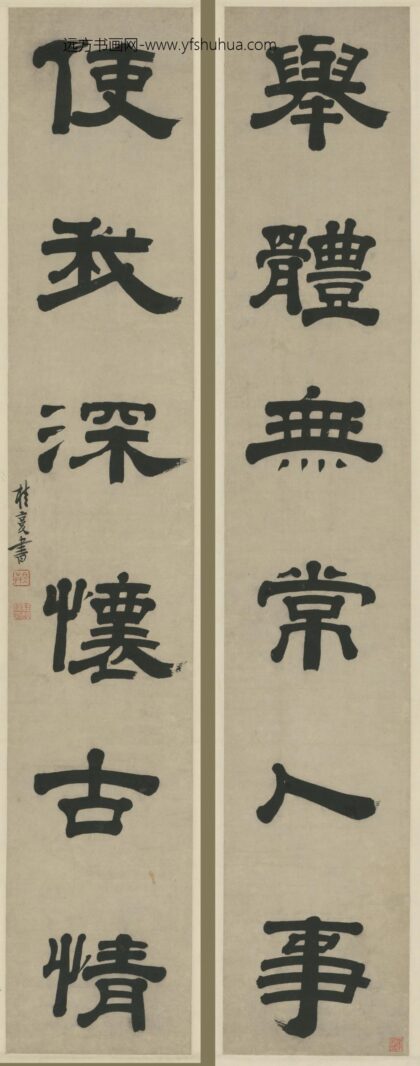 远方书画网-www.yfshuhua.com
舉體無常人事
使我深懷古情
桂書